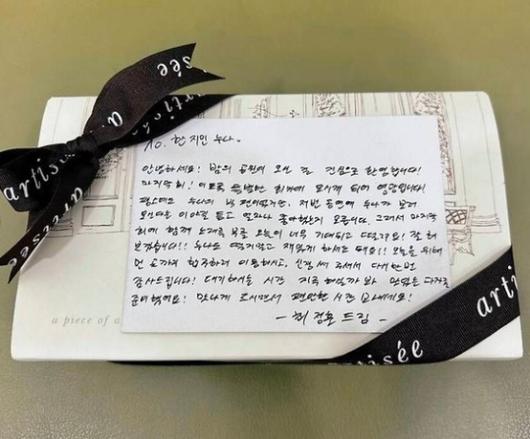 To. 한지민 누나.
안녕하세요! 밤의 공원에 오신 걸 진심으로 환영합니다!
마지막 회! 이토록 특별한 회차에 모시게 되어 영광입니다!
평소에도 누나의 넘 팬이었지만, 저번 공연에 누나가 보러
오신다는 이야길 듣고 얼마나 좋아했는지 모릅니다. 그래서 마지막
회에 함께 노래를 부를 오늘이 너무 기대되고 떨려요! 잘 해
보겠습니다!! 누나도 떨지말고 재밌게 하셨으면 해요!! 오늘을 위해
먼 손까지 합주하러 이동하시고, 신경 써 주셔서 다시 한번
감사드립니다! 대기하는 시간 지루하실까 봐 맛있는 다과를
준비했어요! 맛나게 드시면서 편안한 시간 보내세요!
- 최정훈 드림 -
artisée
artisée
a piece of a
artisée
arti